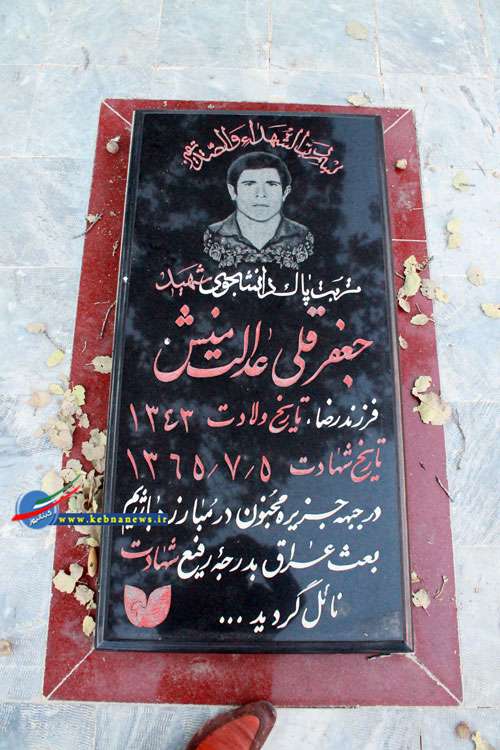 بسم رب الشهداء والصدیقین
تربت پاک دانشجوی شهید
جعفر قلی عدالت منش
فرزند رضا، تاریخ ولادت ۱۳۴۳
تاریخ شهادت ۱۳۶۵/۷/۵
در جبهه جزیره مجنون در مبارزه با رژیم
بعث عراق بدرجهٔ رفیع شهادت
نائل گردید ...
کبنانیوز
www.kebnanews.ir